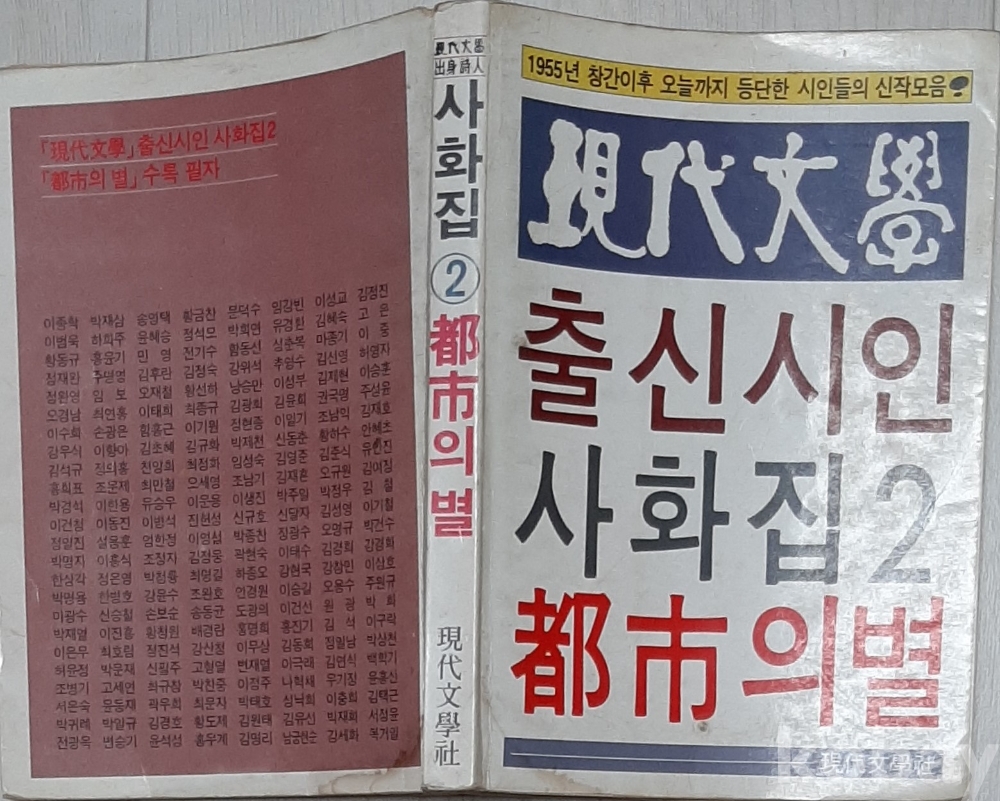 「現代文學」출신시인 사화집2
「都市의 별」수록 필자
이종학 박재삼 송영택 황금찬 문덕수 임강빈 이성교 김정진
이범욱 하희주 윤혜승 정석모 박희연 유경환 김혜숙 고 은
황동규 홍윤기 민 영 전기수 함동선 성춘복 마종기 이 중
정재완 김후란 김정숙 강위석 추영수 김선영 허영자
정완영 임 보 오재철 황선하 낭승만 이성부 김제현 이승훈
오경남 이태희 최종규 김광회 김윤희 권국명 주성윤
이수희 손광은 함홍근 이기원 정현종 이일기 조남익 김재호
강우식 이향아 김초혜 김규화 박제천 신동춘 황하수 안혜초
김석규 정의홍 천양희 최정화 임성숙 김영준 김춘식 유안진
홍희표 조문제 최만철 오세영 조남기 김재흔 오규원 김여정
박경석 이한용 유승우 이운용 이생진 박주일 박정우 김 철
이건청 이동진 이방석 진헌성 신규호 신달자 김성영 이기철
정일진 엄한정 박종찬 장광수 오명규 박건수
박명자 이흥식 조장자 곽현숙 이태수 김경희 강경화
한상각 정은영 최명길 하종오 감현국 강창민 이상호
박명용 한병호 강윤수 조완호 이승길 오용수 주원규
신승철 손보순 송동균 도광의 이건선 원 광 박 희
박재열 이진흥 황청원 배경란 홍영희 홍진기 김 석 이구락
이은무 최호림 정진석 강산정 이무상 김동희 정일남 박상천
허윤정 박문재 신필주 고형렬 변재열 김연식 백학기
조병기 고세연 박찬중 이점주 우기정 윤홍선
서은숙 윤동재 곽우희 최문자 박태호 성낙희 이충희 김택근
박귀례 박일규 김경호 황도제 김원태 김유선 박재희 서정윤
전광옥 변승기 윤석성 홍우계 김명리 남궁현순 김세화 복거일
現代文學
出身詩人
사화집
2
都市의 별
現代文學社
1955년 창간이후 오늘까지 등단한 시인들의 신작모음
現代文學
출신시인
사화집2
都市의별
現代文學社